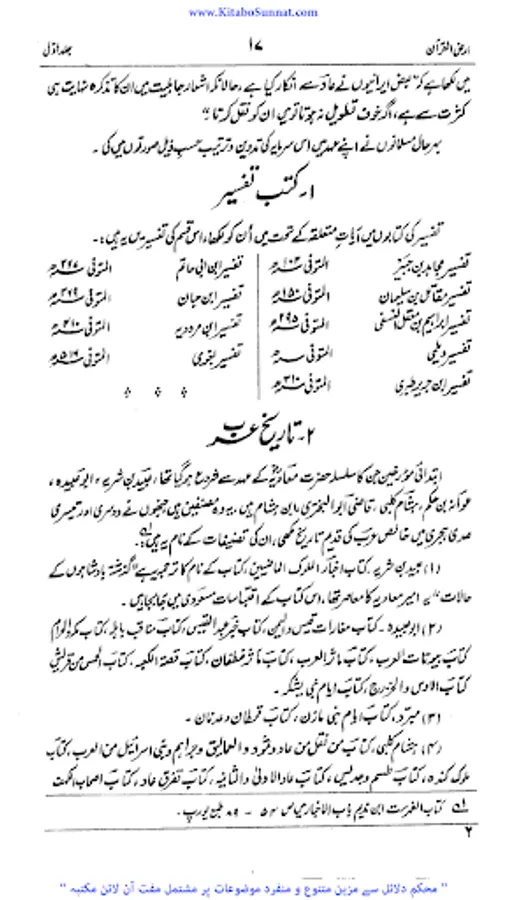 www.KitaboSunnat.com
ارض القرآن ۱۷ جلد اوّل
میں لکھا ہے کہ "بعض ایرانیوں نے عاد سے انکار کیا ہے، حالانکہ اشعار جاہلیت میں ان کا تذکرہ نہایت ہی
کثرت سے ہے، اگر خوف تطویل نہ ہوتا تو میں ان کو نقل کرتا"
بہر حال مسلمانوں نے اپنے عہد میں اس سرمایہ کی تدوین و ترتیب حسب ذیل صورتوں میں کی۔
۱۔ کتب تفسیر
تفسیر کی کتابوں میں آیات متعلقہ کے تحت میں اُن کو لکھا، اس قسم کی تفسیریں یہ ہیں:۔
تفسیر مجاہد بن جبیر المتوفی ۱۰۳ھ تفسیر ابن ابی حاتم المتوفی ۳۲۷ھ
تفسیر مقاتل بن سلیمان المتوفی ۱۵۰ھ تفسیر ابن حبان المتوفی ۳۶۹ھ
تفسیر ابراہیم بن معقل النسفی المتوفی ۲۹۵ھ تفسیر ابن مردویہ المتوفی ۴۱۰ھ
تفسیر دیلمی المتوفی سـھ تفسیر بغوی المتوفی ۵۱۶ھ
تفسیر ابن جریر طبری المتوفی ۳۱۰ھ
۲۔ تاریخ عرب
ابتدائی مؤرخین جن کا سلسلہ حضرت معاویہؓ کے عہد سے شروع ہو گیا تھا، عبید بن شریہ، ابو عبیدہ،
عوانہ بن حکم، ہشام کلبی، قاضی ابو البختری، ابن ہشام ہیں، یہ وہ مصنفین ہیں جنہوں نے دوسری اور تیسری
صدی ہجری میں خالص عرب کی قدیم تاریخ لکھی، ان کی تصنیفات کے نام یہ ہیں:۔
(۱) عبید بن شریہ، کتاب اخبار الملوک الماضیین، کتاب کے نام کا ترجمہ ہے "گذشتہ بادشاہوں کے
حالات" یہ امیر معاویہ کا معاصر تھا، اس کتاب کے اقتباسات مسعودی میں جا بجا ہیں۔
(۲) ابو عبیدہ۔ کتاب مغارات قیس و الیمن، کتاب خبر عبد القیس، کتاب مناقب باہلہ، کتاب مکہ والحرم
کتاب بیوتات العرب، کتاب مآثر العرب، کتاب مآثر غطفان، کتاب قصة الکعبہ، کتاب الحمس من قریش
کتاب الاوس و الخزرج، کتاب ایام بنی یشکر۔
(۳) مبرد، کتاب ایام بنی مازن، کتاب قحطان و عدنان۔
(۴) ہشام کلبی، کتاب من نقل من عاد و ثمود و العمالیق و جرہم و بنی اسرائیل من العرب، کتاب
ملوک کندہ، کتاب طسم و جدیس، کتاب عاد الاولیٰ و الثانیہ، کتاب تفرق عاد، کتاب اصحاب الکہف
لہ کتاب الفہرست ابن ندیم باب الاخباریین ص ۵۴ - ۸۹ طبع یورپ۔
۲
" محکم دلائل سے مزین متنوع و منفرد موضوعات پر مشتمل مفت آن لائن مکتبہ "